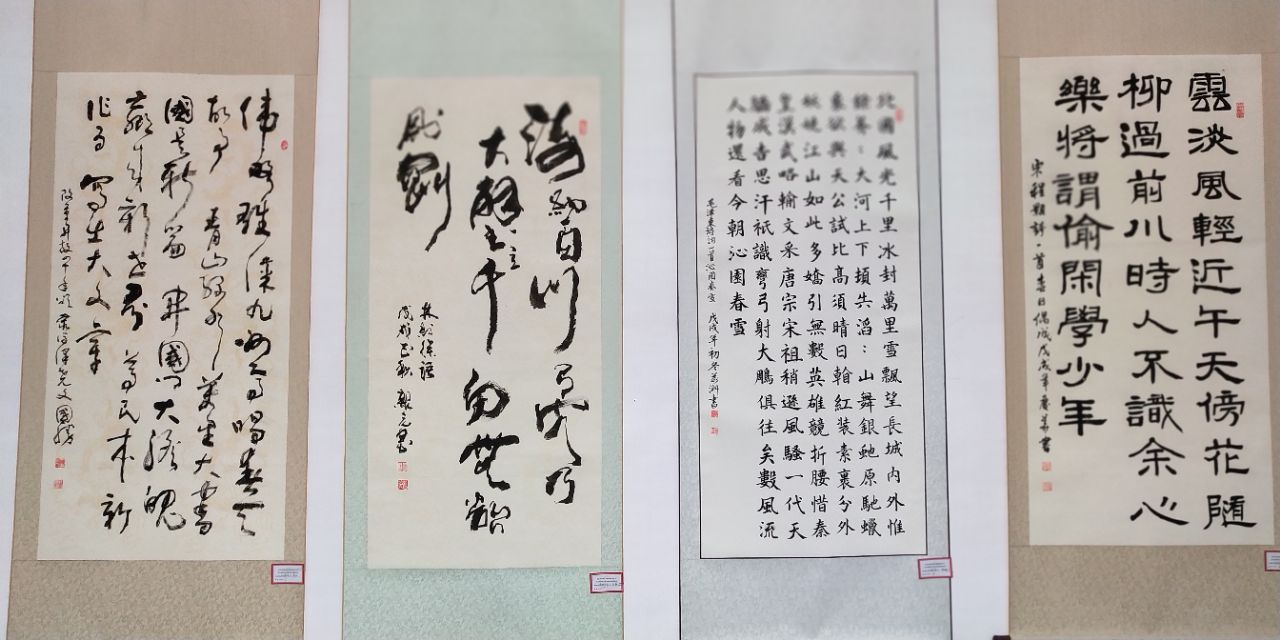 雲淡風輕近午天傍花隨
柳過前川時人不識余心
樂將謂偷閑學少年
宋程顥詩一首春日偶成戊戌年書
北國風光千里冰封萬里雪飄望長城内外惟
餘莽：大河上下頓失滔：山舞銀虵原馳蠟
象欲與天公試比高須晴日翰紅裝素裹分外
妖嬈江山如此多嬌引無數英雄競折腰惜秦
皇漢武略輸文采唐宗宋祖稍遜風騷一代天
驕成吉思汗祇識彎弓射大鵰俱往矣數風流
人物還看今朝沁園春雪
毛澤東詩詞一首沁園春雪 戊戌年初冬書
海納百川有容乃
大壁立千仞無欲
則剛
林則徐語
偉略雄深九州高唱春天
故事青山绿水大書
國是新篇開國門大膽
新世界尊民本新
作为寫出大文章